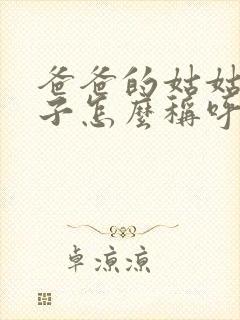 爸爸的姑姑
子怎麼稱呼
卓涼涼